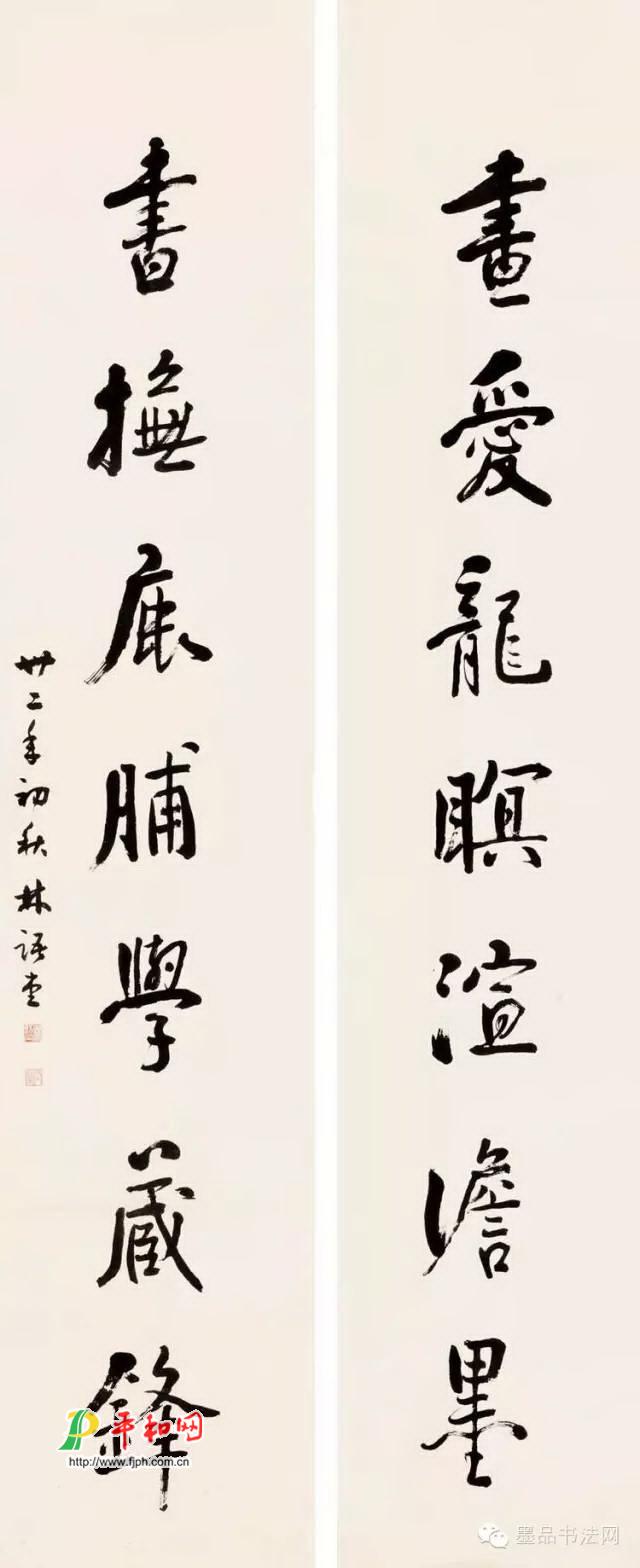 畫愛龍瞑渲澹墨
書撫鹿脯學藏鋒
卅二年初秋林語堂
平和网
http://www.fjph.com.cn
墨品书法网